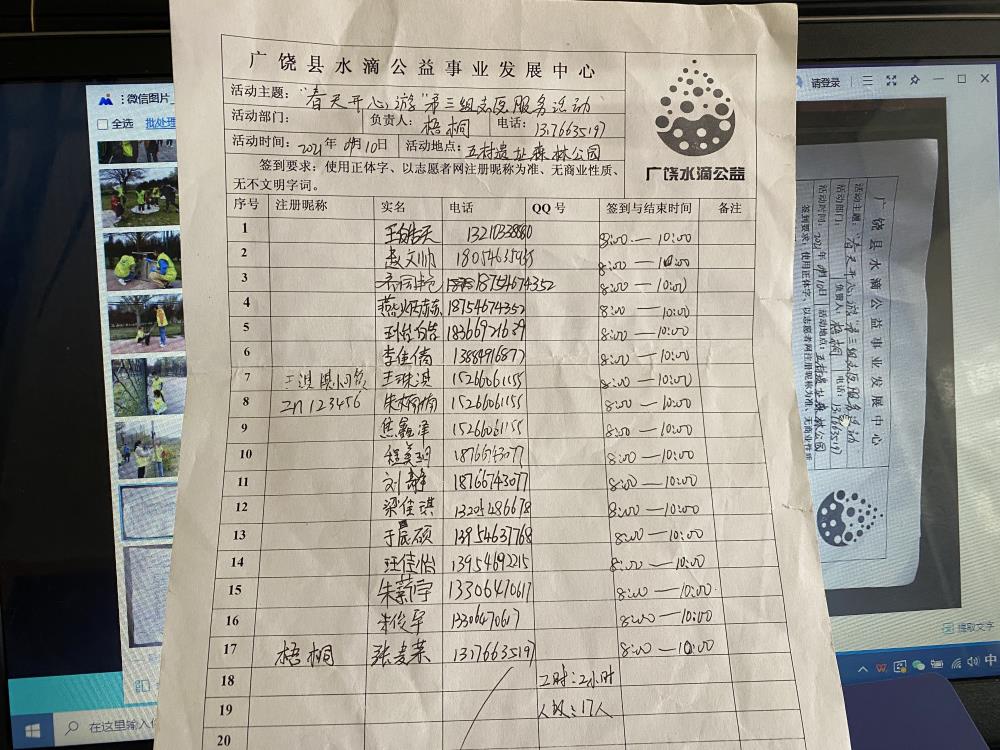 广饶县水滴公益事业发展中心
活动主题：“春天开心游”第三组社区服务活动
活动部门： 负责人：梧桐 电话：
活动时间：2021年 4月10日 活动地点：五村遗址森林公园
签到要求：使用正体字、以志愿者网注册昵称为准、无商业性质、
无不文明字词。
广饶水滴公益
序号 注册昵称 实名 电话 QQ 号 签到与结束时间 备注
1 13210338880 8:00—10:00
2 赵文帅 18054635435 8:00—10:00
3 18754674352 8:00—10:00
4 18754674352 8:00—10:00
5 18366921639 8:00—10:00
6 李佳倩 13884916877 8:00—10:00
7 王琳淇 15266061155 8:00—10:00
8 zn123456 15266061155 8:00—10:00
9 焦鑫泽 15266061155 8:00—10:00
10 8:00—10:00
11 刘静 18766743077 8:00—10:00
12 梁佳琪 13205486678 8:00—10:00
13 于辰硕 13954637768 8:00—10:00
14 汪佳怡 13954692215 8:00—10:00
15 朱薪宇 13306470617 8:00—10:00
16 朱俊宇 8:00—10:00
17 梧桐 8:00—10:00
18 工时：2小时
19 人数：17人
20
微信图片_
全选 批处理
请登录
提取文字
在这里输入
中